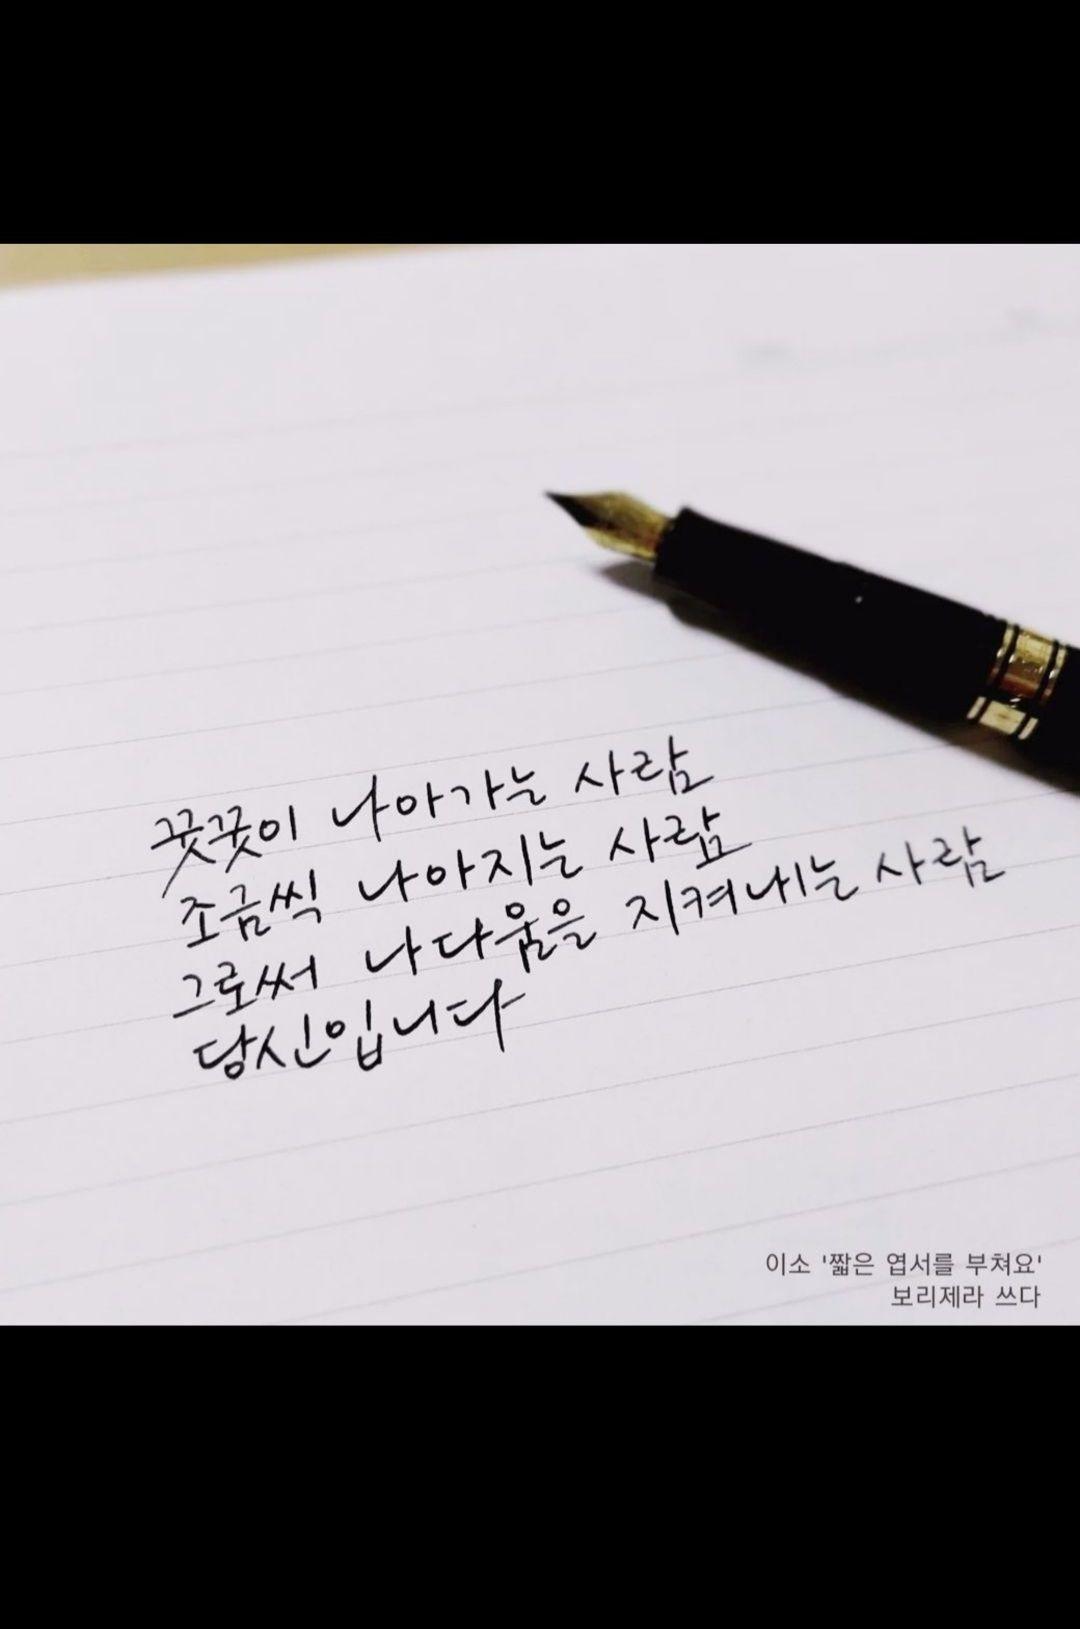 꿋꿋이 나아가는 사람
조금씩 나아지는 사람
그로써 나다움을 지켜내는 사람
당신입니다
이소 '짧은 엽서를 부쳐요'
보리제라 쓰다